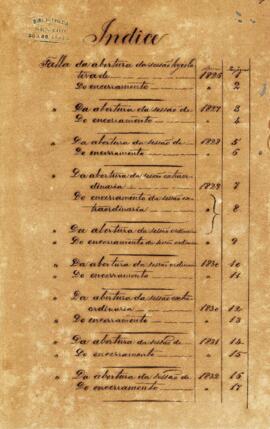 Indice
Falla da abertura da sessão legisla
tiva de 1826 1
Do encerramento " 2
" Da abertura da sessão de 1827 3
Do encerramento " 4
" Da abertura da sessão de 1828 5
" Do encerramento " 6
" Da abertura da sessão extraor
dinaria 1829 7
" Do encerramento da sessão ex
traordinaria " 8
" Da abertura da sessão ordin
" Do encerramento da sessão ordin " 9
" Da abertura da sessão ordin 1830 10
" Do encerramento " 11
" Da abertura da sessão extra
ordinaria 1830 12
" Do encerramento " 13
" Da abertura da sessão de 1831 14
" Do encerramento " 15
" Da abertura da sessão de 1832 16
" Do encerramento " 17